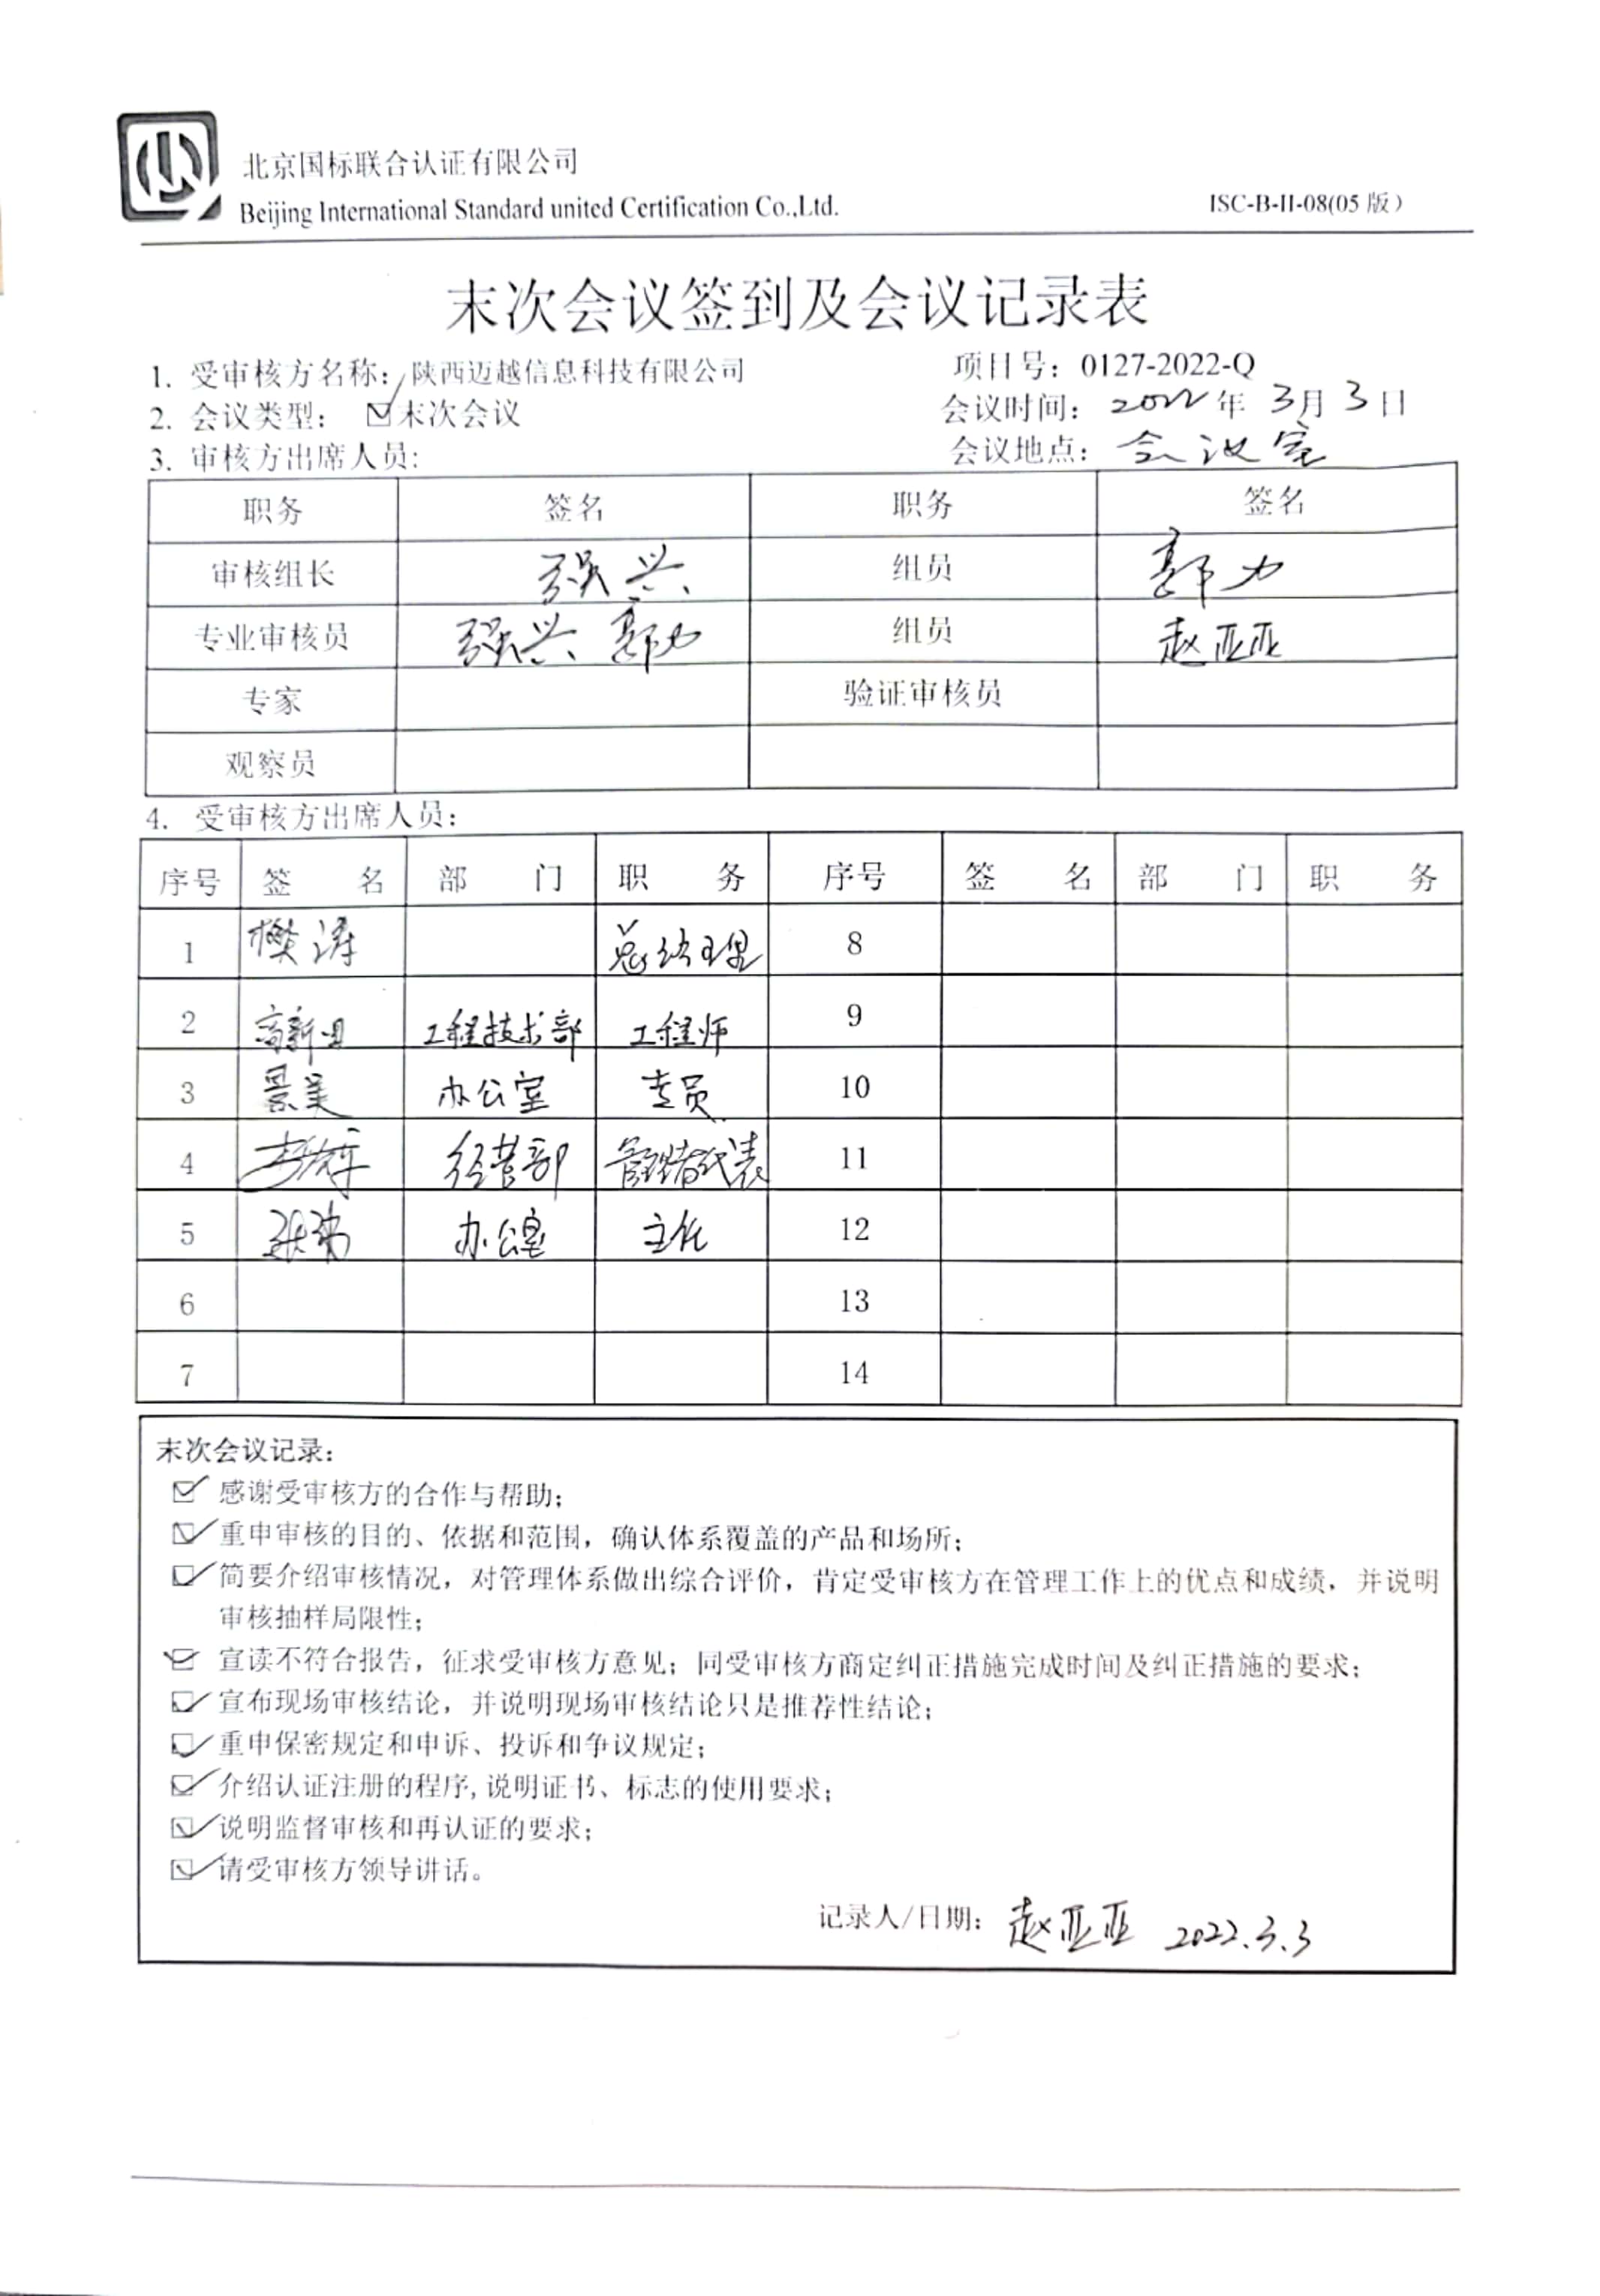 北京国标联合认证有限公司
Beijing International Standard united Certification Co.,Ltd.
ISC-B-II-08(05 版)
末次会议签到及会议记录表
1. 受审核方名称: 陕西迈越信息科技有限公司 项目号: 0127-2022-Q
2. 会议类型: ☑末次会议 会议时间: 2022年 3月 3日
3. 审核方出席人员: 会议地点: 会议室
职务 签名 职务 签名
审核组长 强兴 组员 郭力
专业审核员 强兴、郭力 组员 赵亚亚
专家 验证审核员
观察员
4. 受审核方出席人员:
序号 签 名 部 门 职 务 序号 签 名 部 门 职 务
1 樊涛 总经理 8
2 工程技术部 工程师 9
3 景美 办公室 专员 10
4 经营部 管理者代表 11
5 办公室 主任 12
6 13
7 14
末次会议记录:
☑ 感谢受审核方的合作与帮助;
☑ 重申审核的目的、依据和范围, 确认体系覆盖的产品和场所;
☑ 简要介绍审核情况, 对管理体系做出综合评价, 肯定受审核方在管理工作上的优点和成绩, 并说明
审核抽样局限性;
☑ 宣读不符合报告, 征求受审核方意见; 同受审核方商定纠正措施完成时间及纠正措施的要求;
☑ 宣布现场审核结论, 并说明现场审核结论只是推荐性结论;
☑ 重申保密规定和申诉、投诉和争议规定;
☑ 介绍认证注册的程序, 说明证书、标志的使用要求;
☑ 说明监督审核和再认证的要求;
☑ 请受审核方领导讲话。
记录人/日期: 赵亚亚 2022.3.3